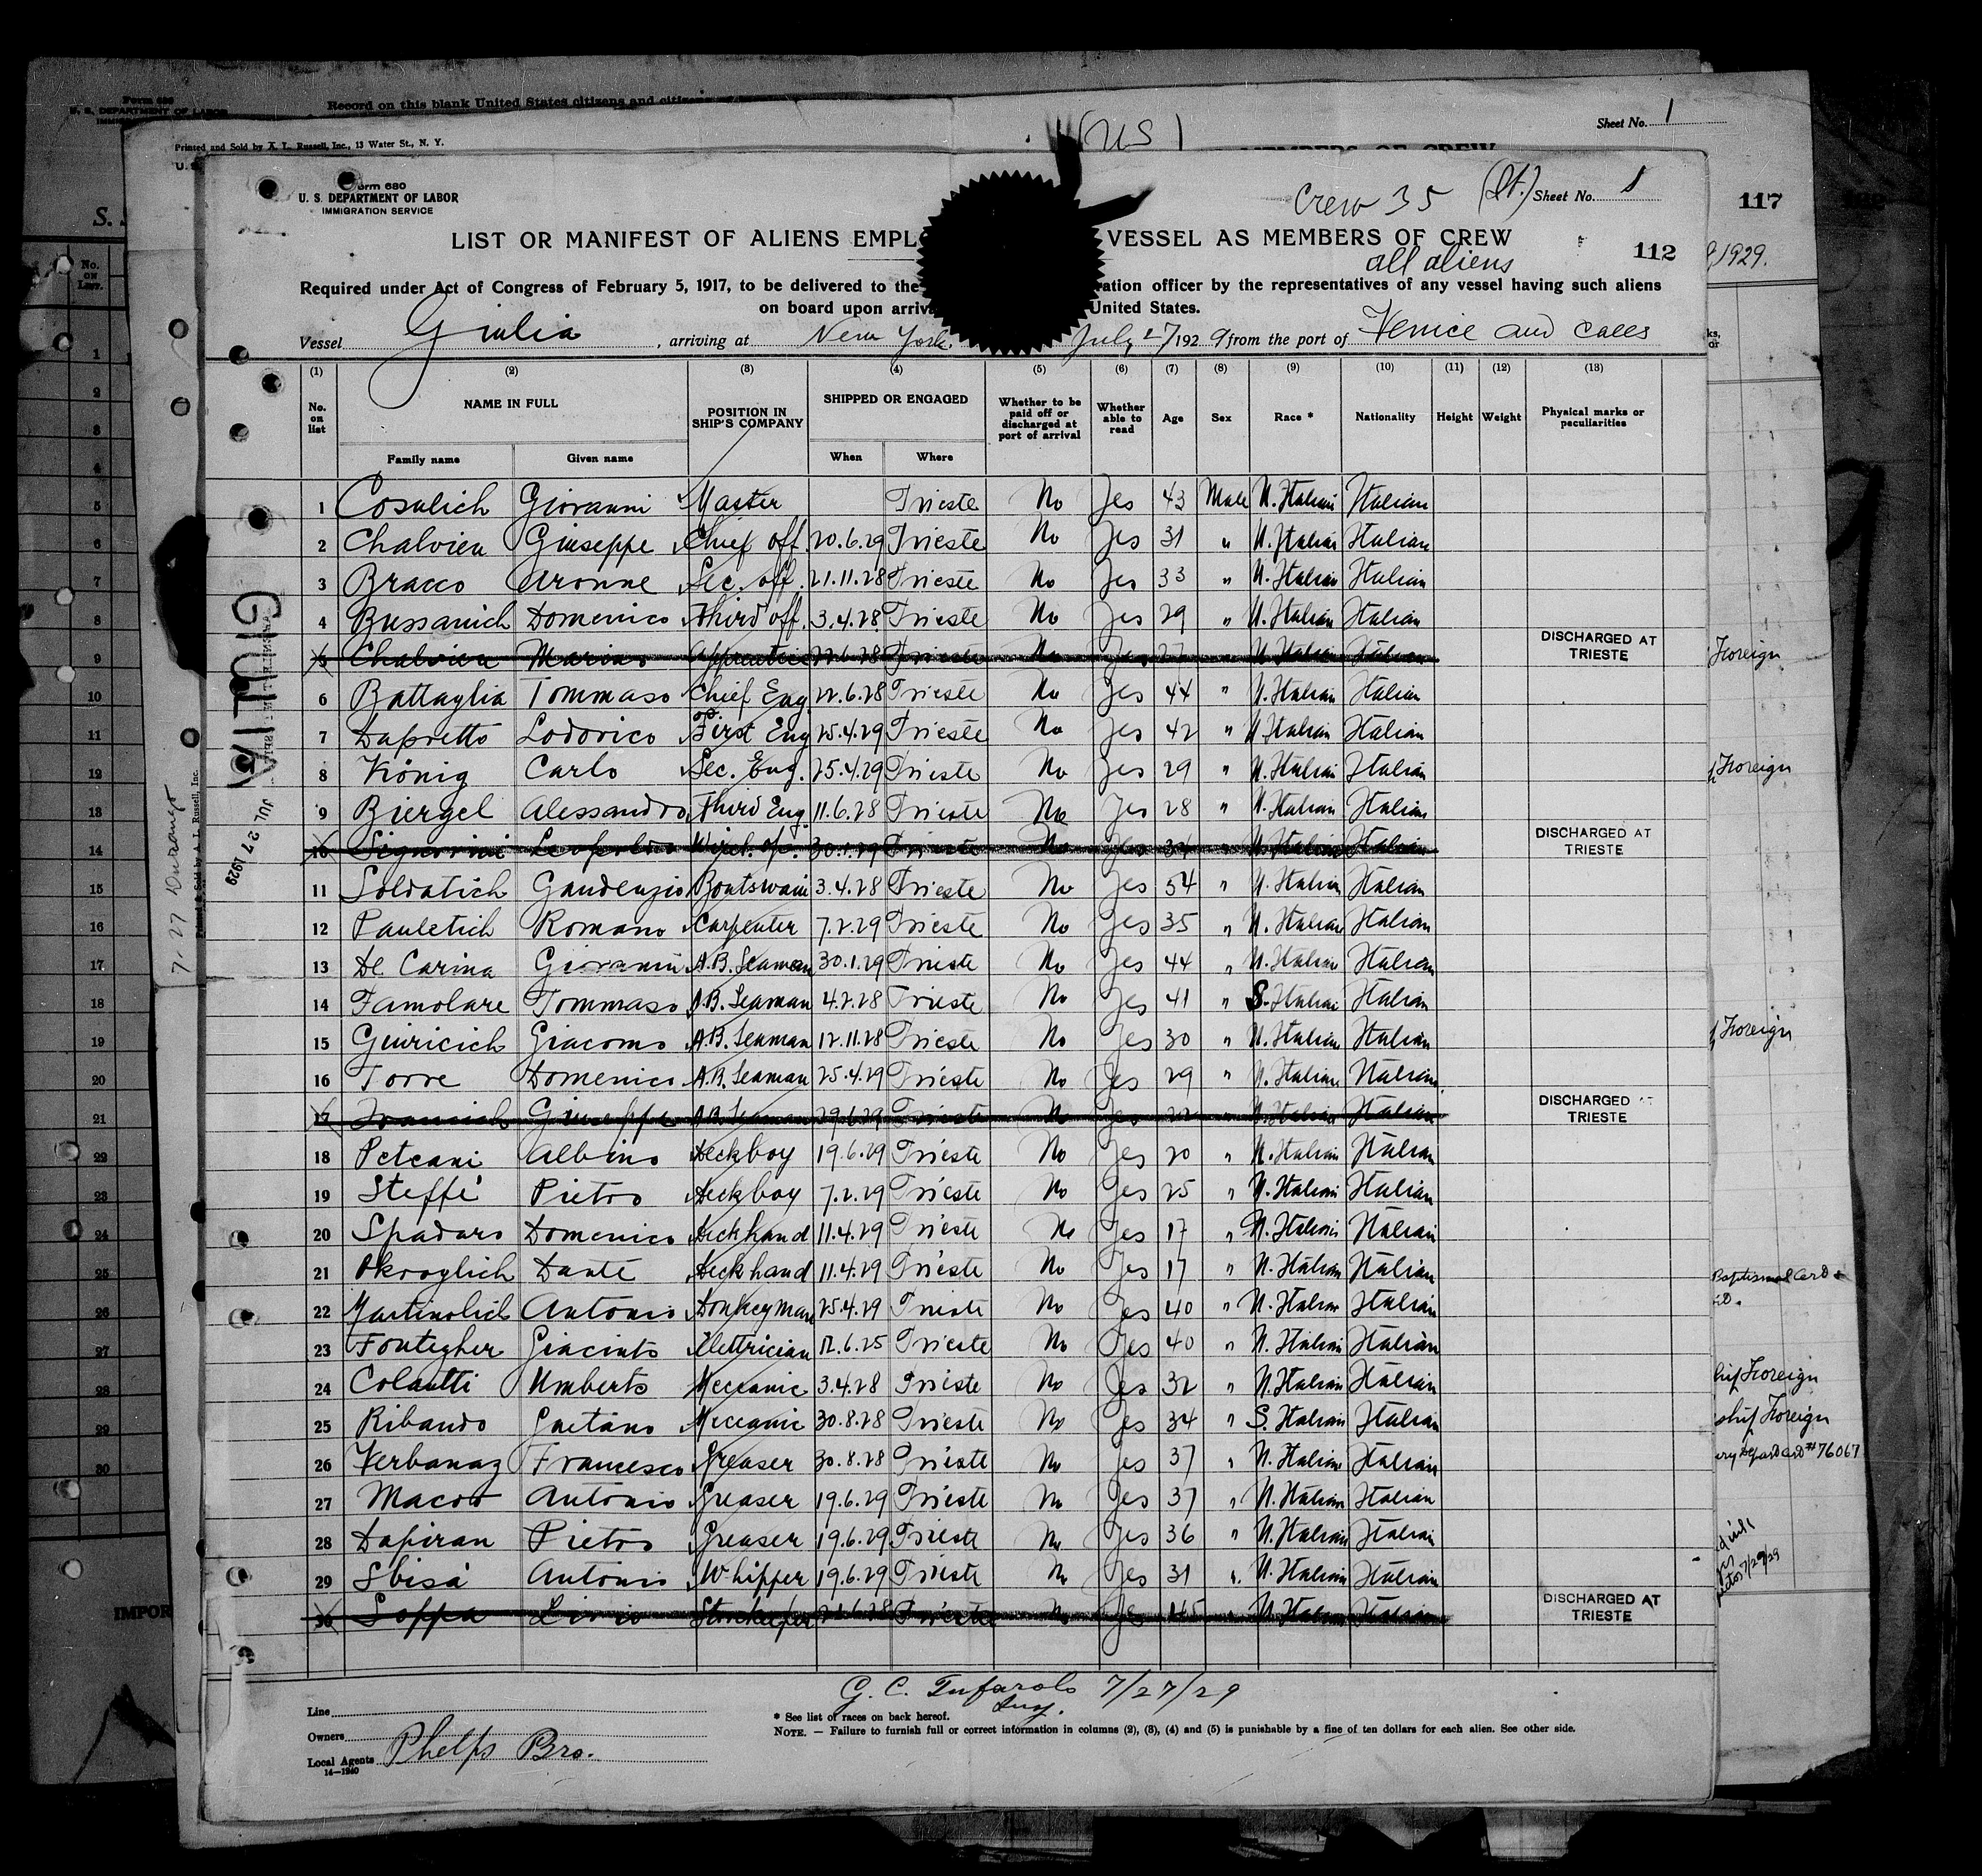 Form 680
U. S. DEPARTMENT OF LABOR
Record on this blank United States citizens and
Printed and Sold by A. L. Russell, Inc., 13 Water St., N. Y.
(US)
Sheet No. 1
MEMBERS OF CREW
117
1929.
Form 680
U. S. DEPARTMENT OF LABOR
IMMIGRATION SERVICE
Crew 35 (It.) Sheet No. 1
LIST OR MANIFEST OF ALIENS EMPLO VESSEL AS MEMBERS OF CREW
all aliens
112
Required under Act of Congress of February 5, 1917, to be delivered to the ration officer by the representatives of any vessel having such aliens
on board upon arriva United States.
Vessel Giulia, arriving at New York. July 27 1929 from the port of Venice and calls
(1) (2) (3) (4) (5) (6) (7) (8) (9) (10) (11) (12) (13)
No. on list NAME IN FULL POSITION IN SHIP'S COMPANY SHIPPED OR ENGAGED Whether to be paid off or discharged at port of arrival Whether able to read Age Sex Race * Nationality Height Weight Physical marks or peculiarities
Family name Given name When Where
1 Cosulich Giovanni Master Trieste No Yes 43 Male N. Italian Italian
2 Chalvien Giuseppe Chief off. 20.6.29 Trieste No Yes 31 " N. Italian Italian
3 Bracco Aronne Sec. off. 21.11.28 Trieste No Yes 33 " N. Italian Italian
4 Bussanich Domenico Third off. 3.4.28 Trieste No Yes 29 " N. Italian Italian
5 Chalvien Marino Apprentice 22.6.28 Trieste No Yes 27 " N. Italian Italian DISCHARGED AT TRIESTE
6 Battaglia Tommaso Chief Eng. 22.6.28 Trieste No Yes 44 " N. Italian Italian
7 Dapretto Lodovico First Eng 25.4.29 Trieste No Yes 42 " N. Italian Italian
8 König Carlo Sec. Eng. 25.4.29 Trieste No Yes 29 " N. Italian Italian
9 Biergel Alessandro Third Eng. 11.6.28 Trieste No Yes 28 " N. Italian Italian
10 Signorini Leopoldo Wirel. op. 30.1.29 Trieste No Yes 34 " N. Italian Italian DISCHARGED AT TRIESTE
11 Soldatich Gaudenzio Boatswain 3.4.28 Trieste No Yes 54 " N. Italian Italian
12 Pauletich Romano Carpenter 7.2.29 Trieste No Yes 35 " N. Italian Italian
13 De Carina Giovanni A.B. Seaman 30.1.29 Trieste No Yes 44 " N. Italian Italian
14 Famolare Tommaso A.B. Seaman 4.2.28 Trieste No Yes 41 " S. Italian Italian
15 Giuricich Giacomo A.B. Seaman 12.11.28 Trieste No Yes 30 " N. Italian Italian
16 Torre Domenico A.B. Seaman 25.4.29 Trieste No Yes 29 " N. Italian Italian
17 Ivancich Giuseppe A.B. Seaman 29.6.29 Trieste No Yes 22 " N. Italian Italian DISCHARGED AT TRIESTE
18 Peteani Albino Deckboy 19.6.29 Trieste No Yes 20 " N. Italian Italian
19 Steffè Pietro Deckboy 7.2.29 Trieste No Yes 25 " N. Italian Italian
20 Spadaro Domenico Deckhand 11.4.29 Trieste No Yes 17 " N. Italian Italian
21 Okroglich Dante Deckhand 11.4.29 Trieste No Yes 17 " N. Italian Italian
22 Martinolich Antonio Donkeyman 25.4.29 Trieste No Yes 40 " N. Italian Italian
23 Fontegher Giacinto Elettrician 12.6.25 Trieste No Yes 40 " N. Italian Italian
24 Colautti Umberto Meccanic 3.4.28 Trieste No Yes 32 " N. Italian Italian
25 Ribando Gaetano Meccanic 30.8.28 Trieste No Yes 34 " S. Italian Italian
26 Verbanaz Francesco Greaser 30.8.28 Trieste No Yes 37 " N. Italian Italian
27 Macor Antonio Greaser 19.6.29 Trieste No Yes 37 " N. Italian Italian
28 Dapiran Pietro Greaser 19.6.29 Trieste No Yes 36 " N. Italian Italian
29 Sbisà Antonio Whipper 19.6.29 Trieste No Yes 31 " N. Italian Italian
30 Soppa Livio Storekeeper 22.6.28 Trieste No Yes 45 " N. Italian Italian DISCHARGED AT TRIESTE
G. C. Tufarolo 7/27/29
Insp.
Line
Owners
Local Agents Phelps Bro.
14—1940
* See list of races on back hereof.
NOTE. — Failure to furnish full or correct information in columns (2), (3), (4) and (5) is punishable by a fine of ten dollars for each alien. See other side.
GIULIA
JUL 27 1929
7-27 Durango
Printed & Sold by A. L. Russell, Inc.
Foreign
Foreign
Foreign
Baptismal Cert
Foreign
ship Foreign
#76067
7/29/29
IMPOR